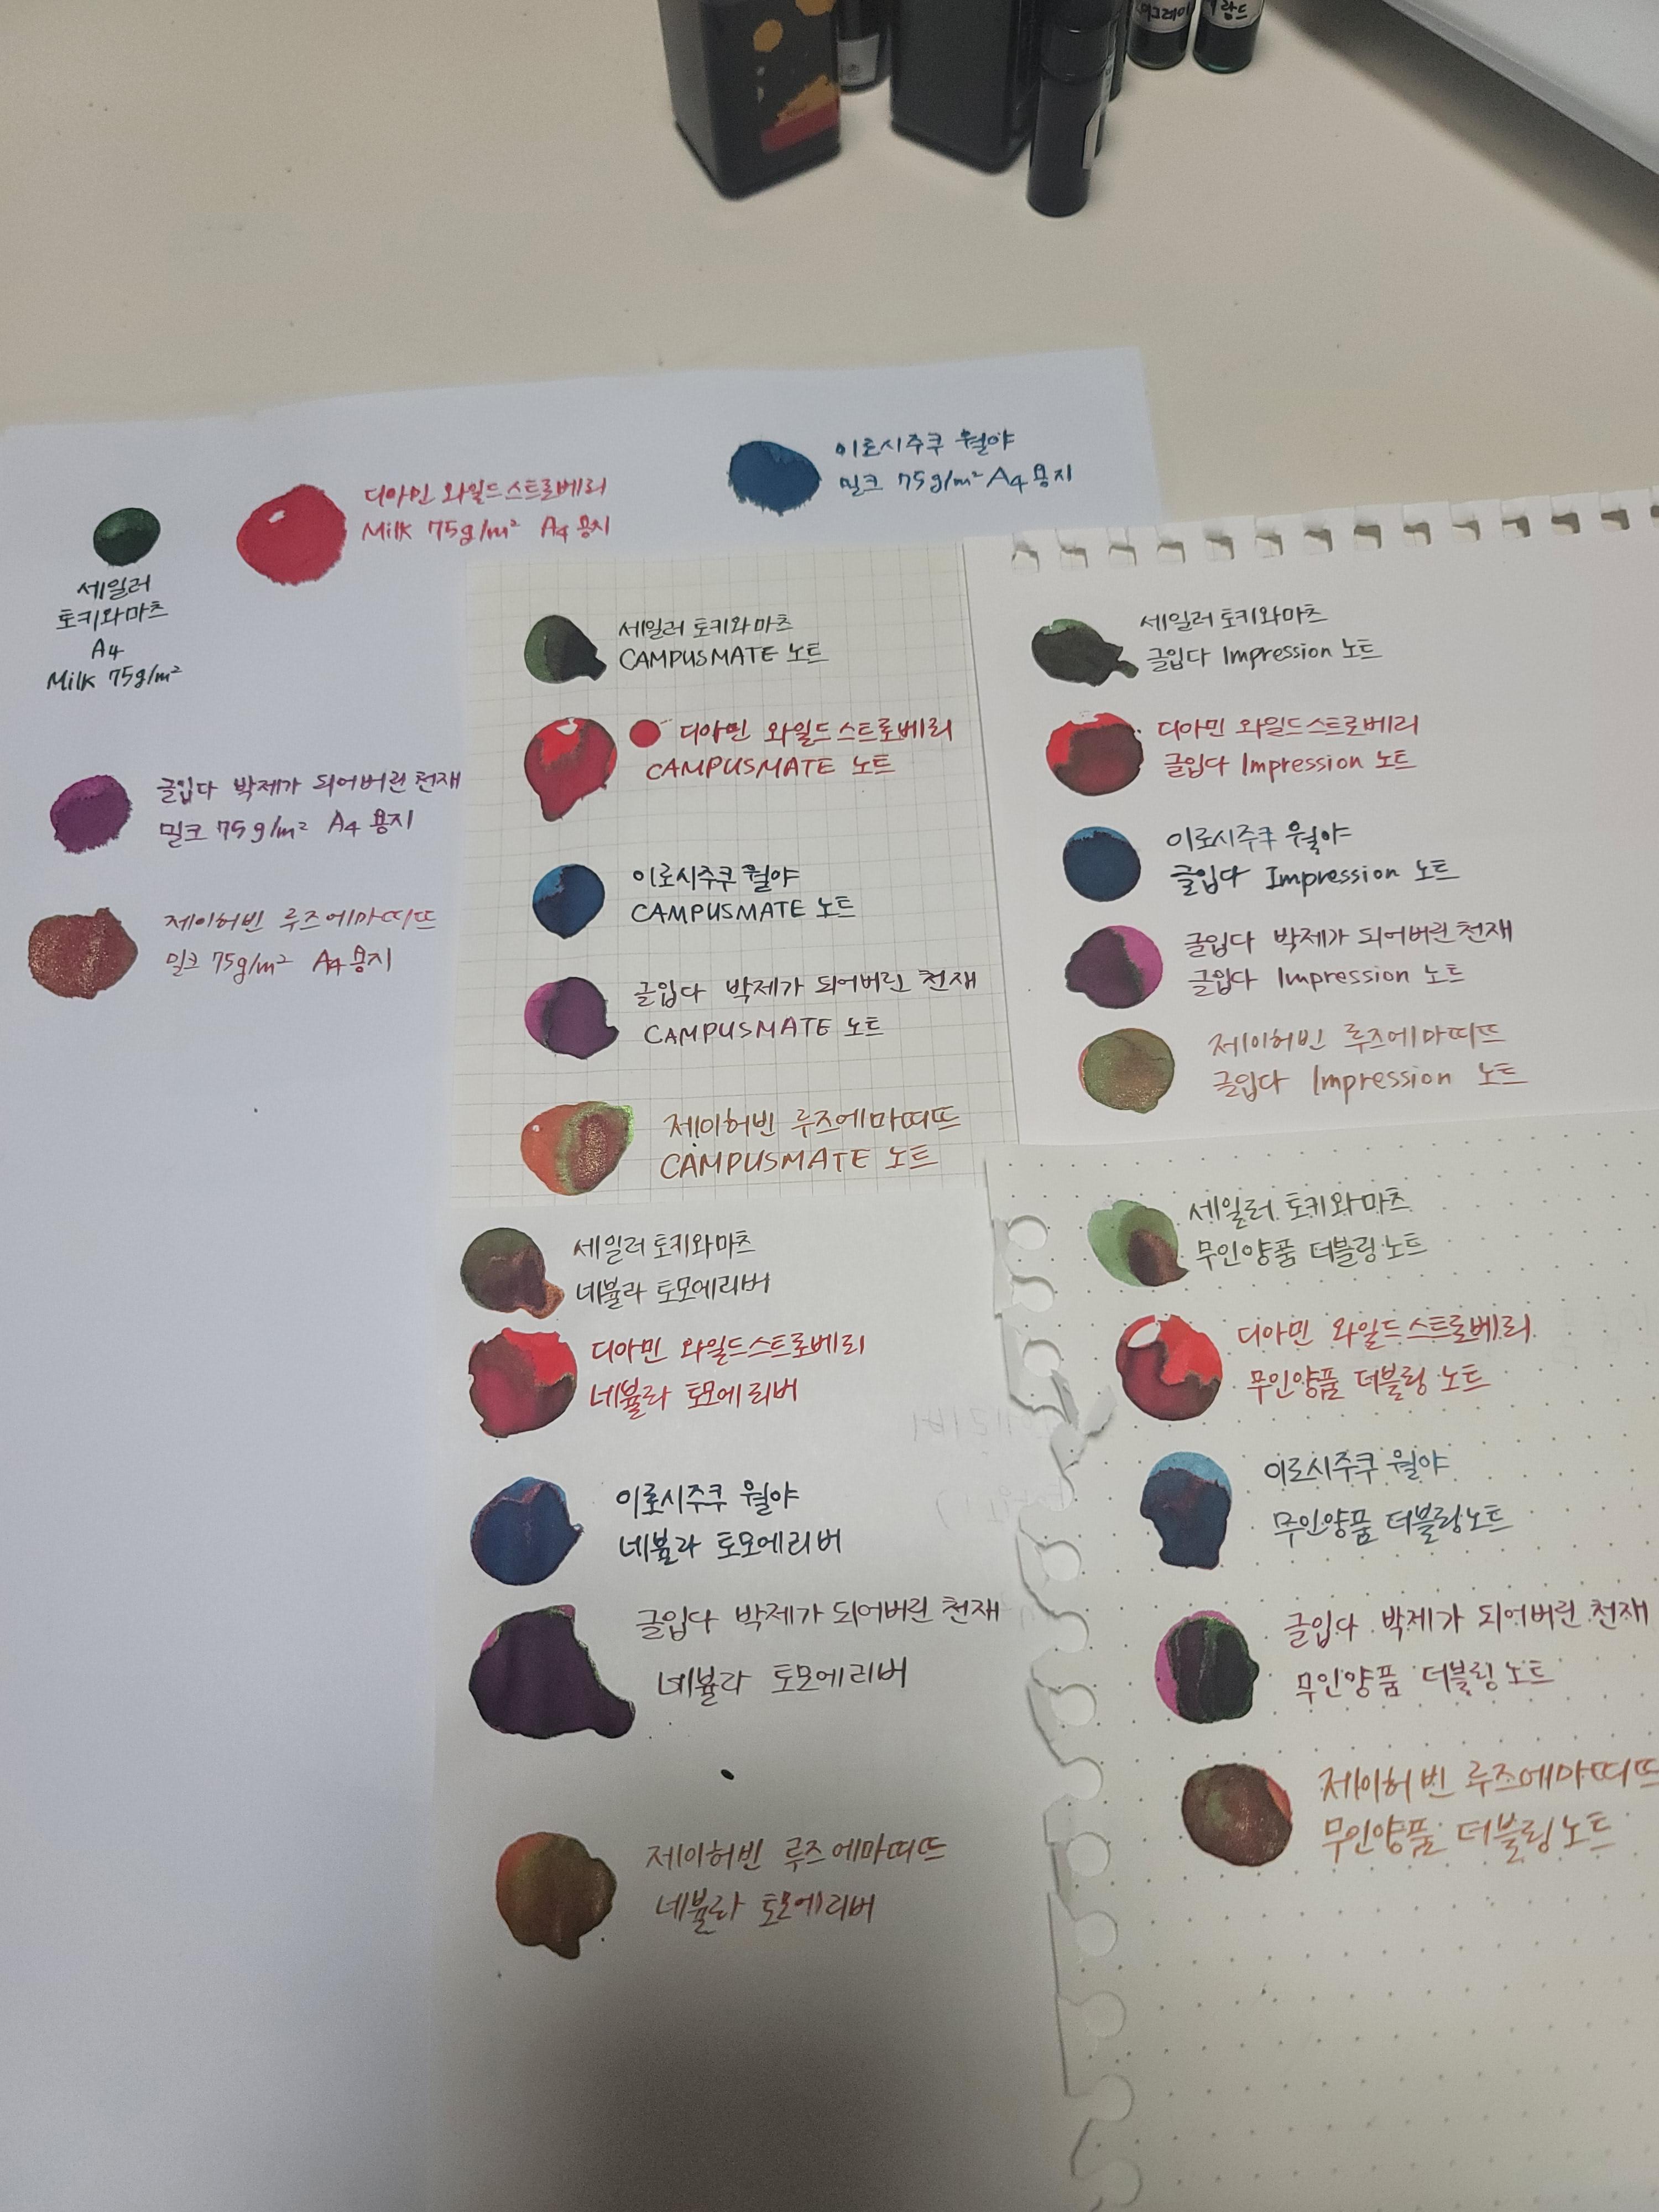 세일러
토키와마츠
A4
Milk 75g/m²
디아민 와일드스트로베리
Milk 75g/m² A4 용지
이로시주쿠 월야
밀크 75g/m² A4 용지
글입다 박제가 되어버린 천재
밀크 75g/m² A4 용지
제이허빈 루즈에마띠뜨
밀크 75g/m² A4 용지
세일러 토키와마츠
CAMPUSMATE 노트
디아민 와일드스트로베리
CAMPUSMATE 노트
이로시주쿠 월야
CAMPUSMATE 노트
글입다 박제가 되어버린 천재
CAMPUSMATE 노트
제이허빈 루즈에마띠뜨
CAMPUSMATE 노트
세일러 토키와마츠
글입다 Impression 노트
디아민 와일드스트로베리
글입다 Impression 노트
이로시주쿠 월야
글입다 Impression 노트
글입다 박제가 되어버린 천재
글입다 Impression 노트
제이허빈 루즈에마띠뜨
글입다 Impression 노트
세일러 토키와마츠
네뷸라 토모에리버
디아민 와일드스트로베리
네뷸라 토모에리버
이로시주쿠 월야
네뷸라 토모에리버
글입다 박제가 되어버린 천재
네뷸라 토모에리버
제이허빈 루즈에마띠뜨
네뷸라 토모에리버
세일러 토키와마츠
무인양품 더블링노트
디아민 와일드스트로베리
무인양품 더블링 노트
이로시주쿠 월야
무인양품 더블링노트
글입다 박제가 되어버린 천재
무인양품 더블링노트
제이허빈 루즈에마띠뜨
무인양품 더블링노트